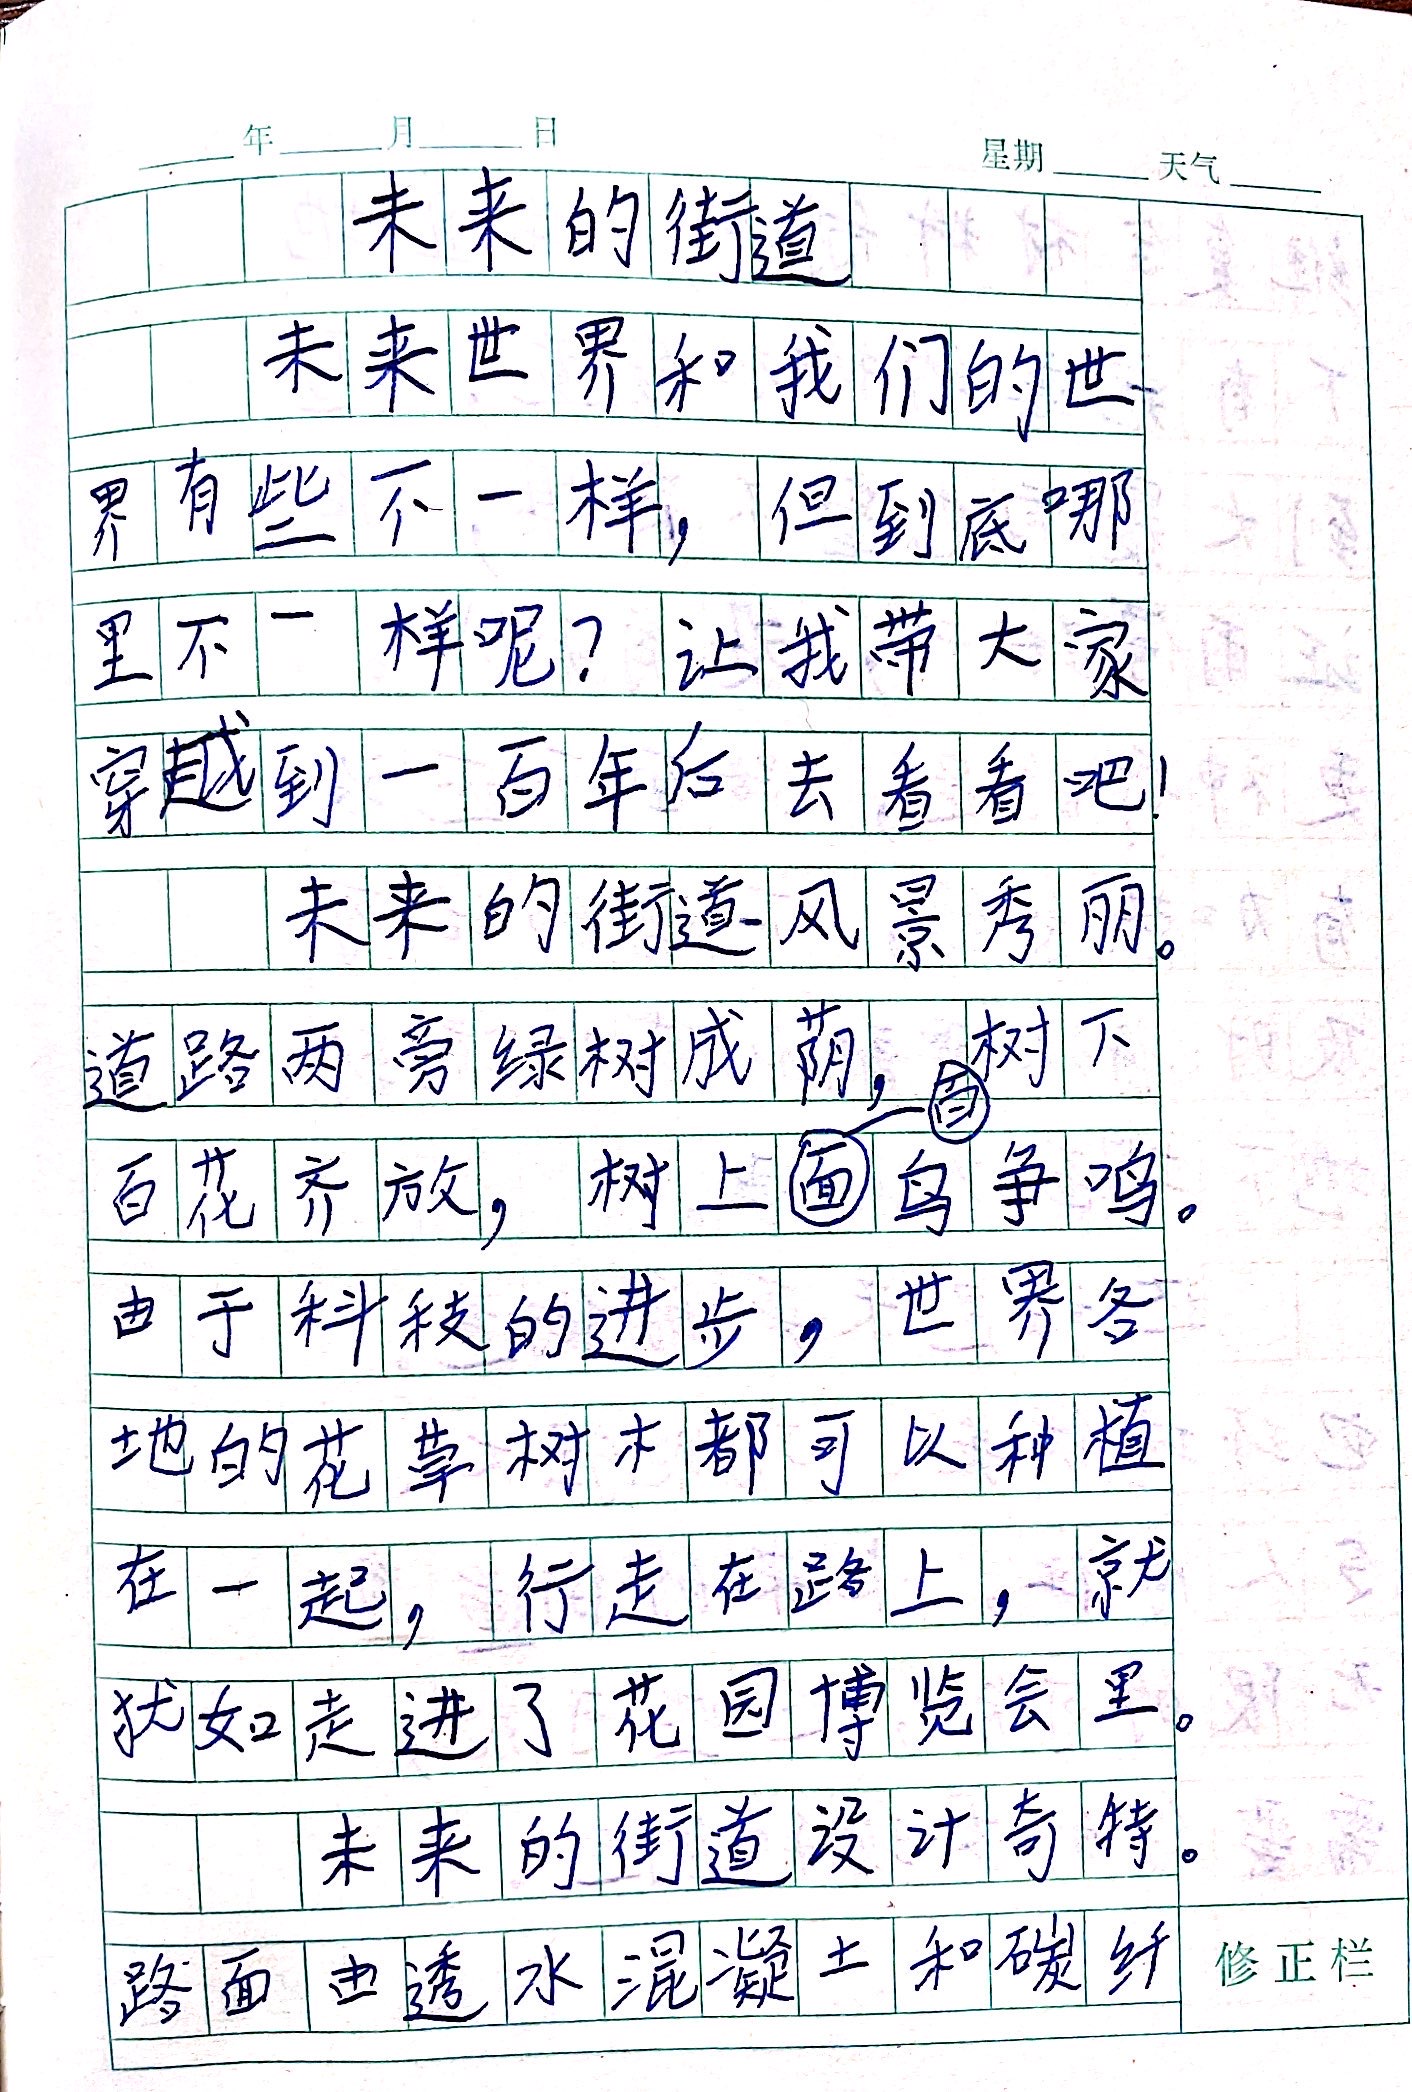 年 月 日 星期 天气
未来的街道
未来世界和我们的世
界有些不一样，但到底哪
里不一样呢？让我带大家
穿越到一百年后去看看吧！
未来的街道风景秀丽。
道路两旁绿树成荫，树下
百
百花齐放，树上面鸟争鸣。
由于科技的进步，世界各
地的花草树木都可以种植
在一起，行走在路上，就
犹如走进了花园博览会里。
未来的街道设计奇特。
路面由透水混凝土和碳纤
修正栏